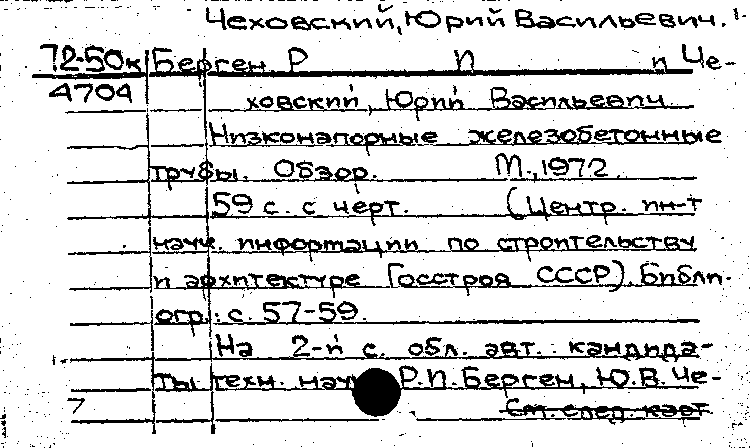 Чеховский, Юрий Васильевич.
72-50к Берген Р И и Че-
4704
ховский, Юрий Васильевич
Низконапорные железобетонные
трубы. Обзор. М., 1972.
59 с. с черт. (Центр. ин-т
науч. информации по строительству
и архитектуре Госстроя СССР). Библи-
огр.: с. 57-59.
На 2-й с. обл. авт.: кандида-
ты техн. наук Р.И. Берген, Ю.В. Че-
7 См. след. карт